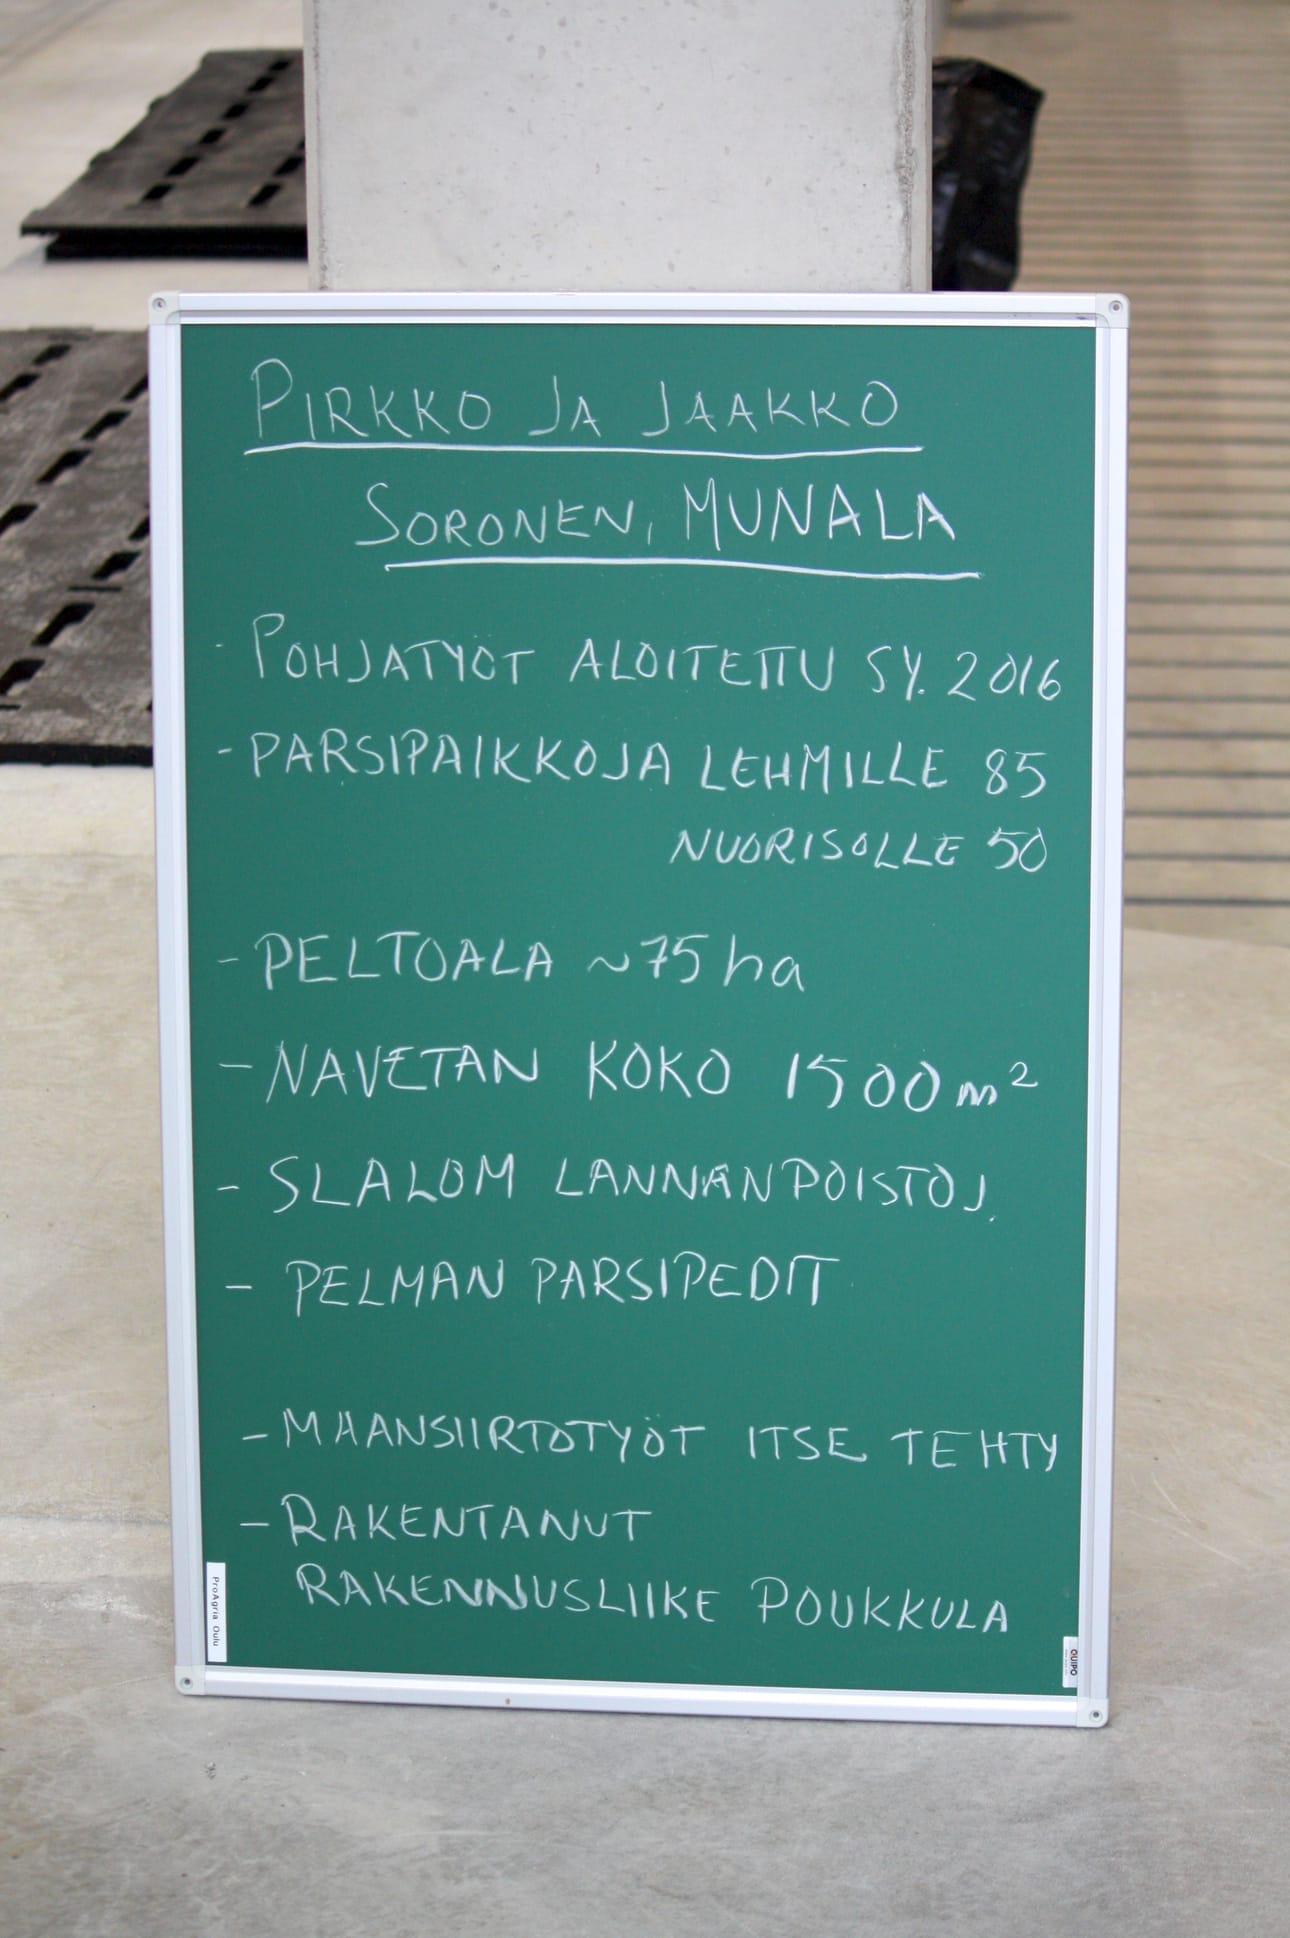 PIRKKO JA JAAKKO
SORONEN, MUNALA
- POHJATYÖT ALOITETTU SY. 2016
- PARSIPAIKKOJA LEHMILLE 85
NUORISOLLE 50
- PELTOALA ~75 ha
- NAVETAN KOKO 1500 m²
- SLALOM LANNANPOISTOJ.
- PELMAN PARSIPEDIT
- MAANSIIRTOTYÖT ITSE TEHTY
- RAKENTANUT
RAKENNUSLIIKE POUKKULA
ProAgria Oulu
QUIPO